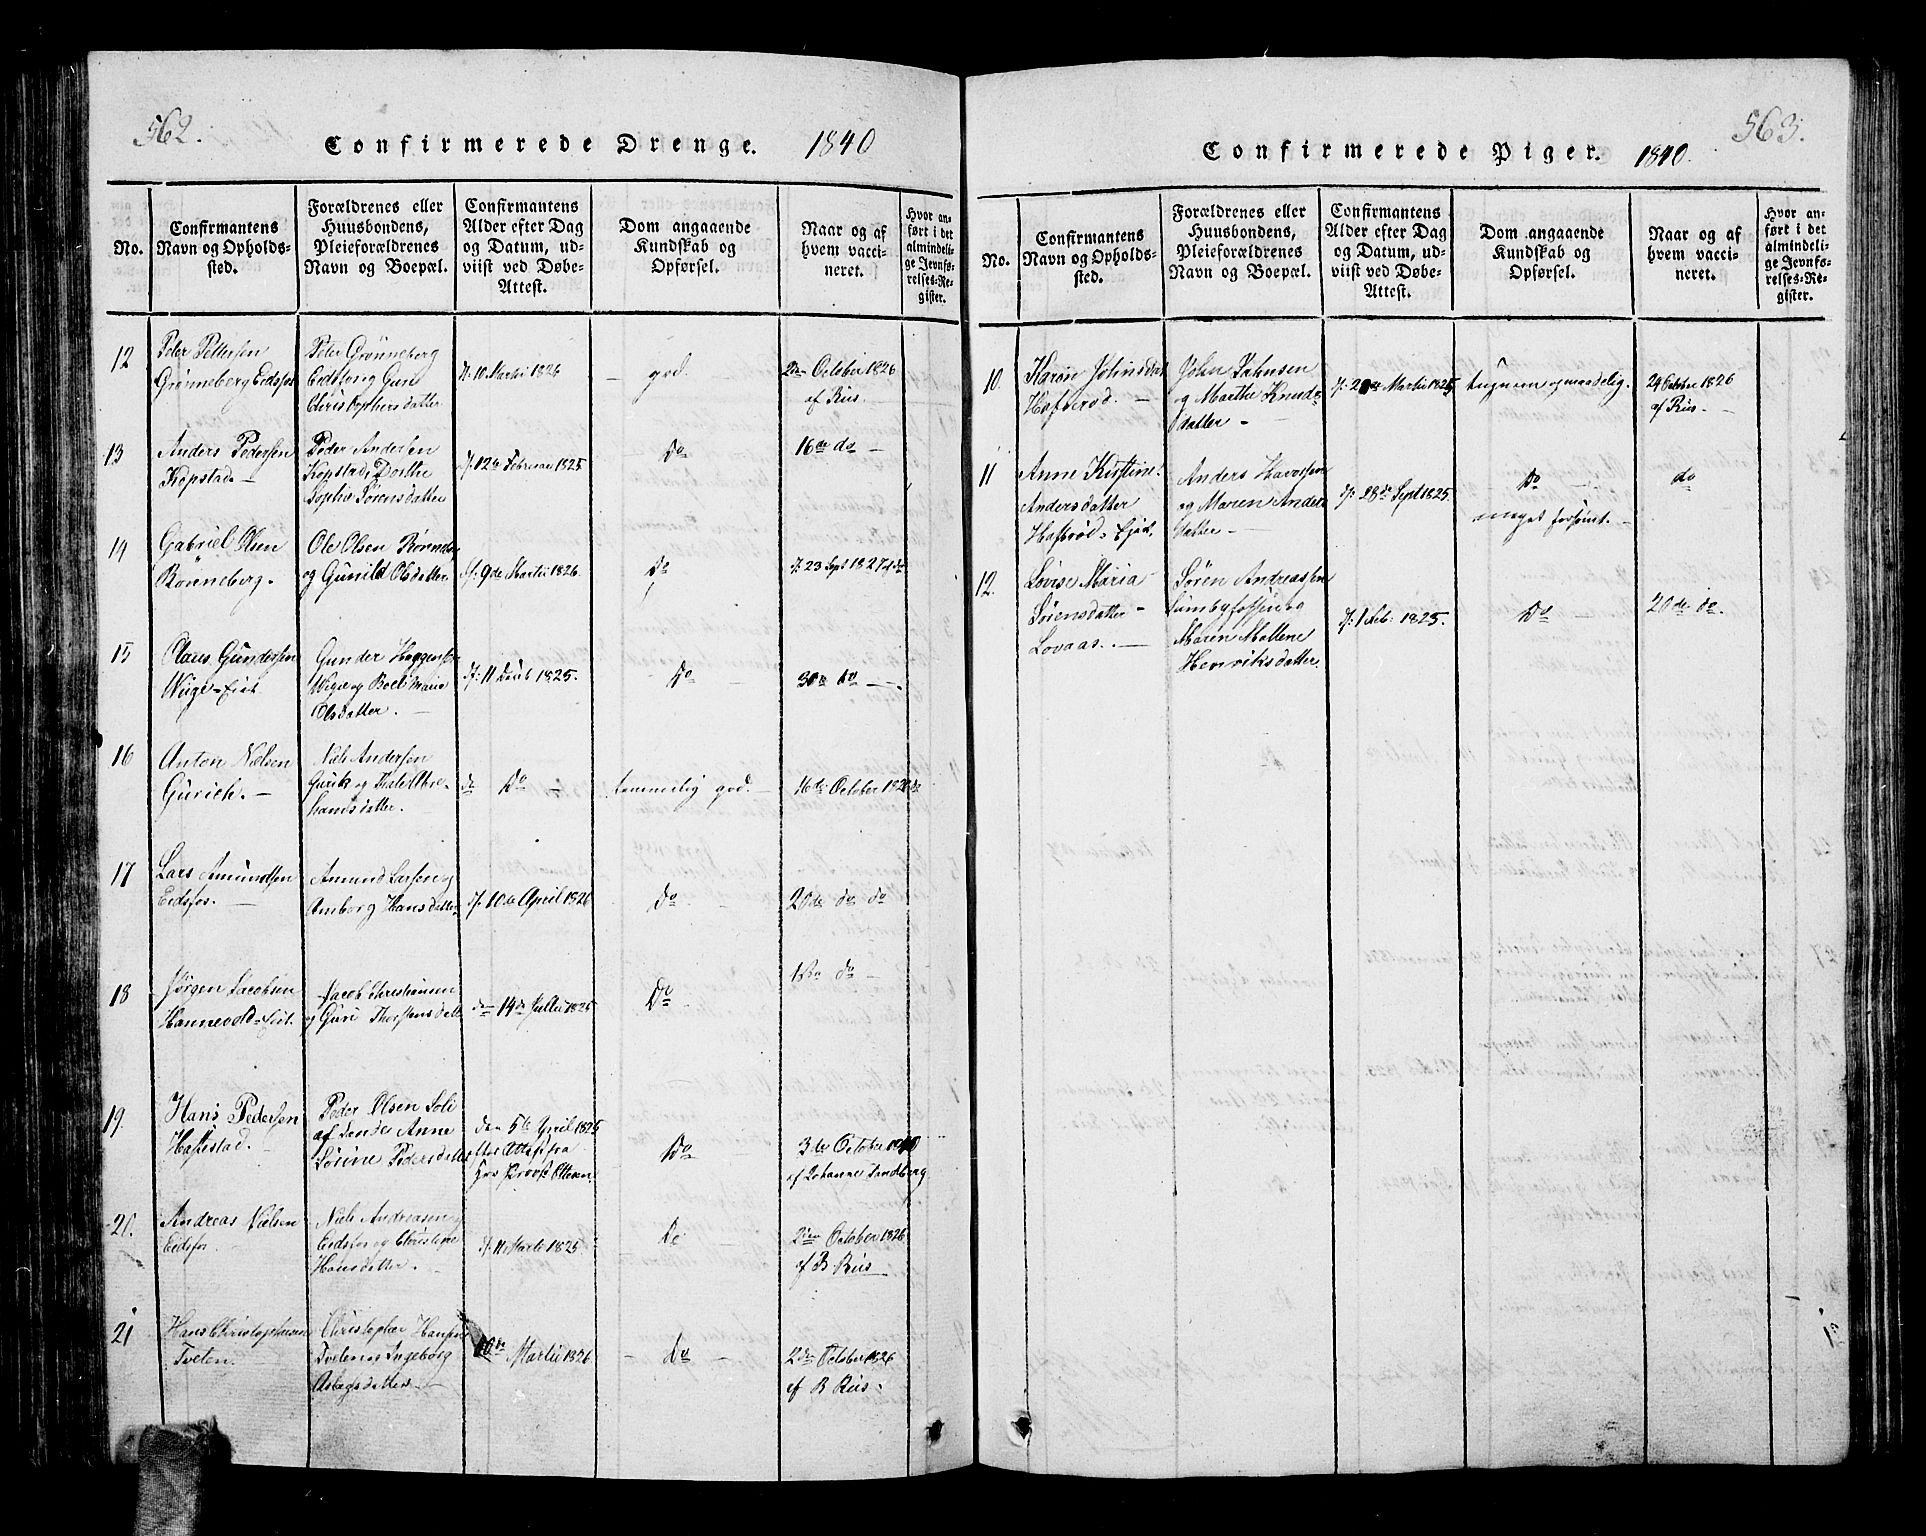 562.
Confirmerede Drenge. 1840
No.
Confirmantens
Navn og Opholds-
sted.
Forældrenes eller
Huusbondens,
Pleieforældrenes
Navn og Boepæl.
Confirmantens
Alder efter Dag
og Datum, ud-
viist ved Døbe-
Attest.
Dom angaaende
Kundskab og
Opførsel.
Naar og af
hvem vacci-
neret.
Hvor an-
ført i det
almindeli-
ge Jevnfø-
relses-Re-
gister.
12
Peter Pettersen
Grønneberg Eidsfos
Peder Grønneberg
Eidsfos og Guri
Christophersdatter
10 Martii 1826
god.
2den October 1826
af Riis
13
Anders Pedersen
Kopstad
Peder Andersen
Kopstad Dorthe
Sophie Sørensdatter
12te Februar 1825
Do
16de do
14
Gabriel Olsen
Rønneberg.
Ole Olsen
og Gunild Olsdatter
9de Martii 1826.
Do
23 Sept 1827 do
15
Claus Gundersen
Wiige-Eiet
Gunder Haggensen
Wige og Boel Maria
Olsdatter.
11 1825.
Do
30te do
16
Anton Nielsen
Gurich.
Niels Andersen
Gurik og Abra-
hamsdatter.
do Do
temmelig god.
16de October 1826 do
17
Lars Amundsen
Eidsfos.
Amund Larsen og
Amborg Hansdatter
10de April 1826
do
20de do do
18
Jørgen Jacobsen
Hannevold-Eiet.
Jacob Christiansen
og Guri Thorstensdatter
den 14de Julii 1825
Do
do
19.
Hans Pedersen
Haftestad.
Peder Olsen Soli
af Sande Anne
Sørine Pedersdatter
den 5te April 1825
efter Attest fra
Hrr Provst Ottesen.
Do
3de October 1840
af Johanne Sandberg
20.
Andreas Nielsen
Eidsfos
Niels Andreasen og
Eidsfos og Christine
Hansdatter.
11 Martii 1825
Do
2den October 1826
af B Riis
21
Hans Christophersen
Tveten.
Christopher Hansen
Tveten og Ingeborg
Aslagsdatter
10de Martii 1826
Do
2den October 1826
af B Riis.
563.
Confirmerede Piger. 1840.
No.
Confirmantens
Navn og Opholds-
sted.
Forældrenes eller
Huusbondens,
Pleieforældrenes
Navn og Boepæl.
Confirmantens
Alder efter Dag
og Datum, ud-
viist ved Døbe-
Attest.
Dom angaaende
Kundskab og
Opførsel.
Naar og af
hvem vacci-
neret.
Hvor an-
ført i det
almindeli-
ge Jevnfø-
relses-Re-
gister.
10.
Karen Johnsdat
Hafverød.
John Johnsen
og Marthe Knuds
datter
Martii 1825
maadelig.
24 October 1826
af Riis
11
Anne Kirstine
Andersdatter
Hafbrød-Ejet.
Anders
og Maren Anders
datter
28de Sept 1825.
Do
meget forsømt.
do
12.
Lovise Maria
Sørensdatter
Lovaas.
Søren Andreassen
Sundbyfossen og
Maren Mallene
Henriksdatter.
1 Feb: 1825.
Do
20de do.